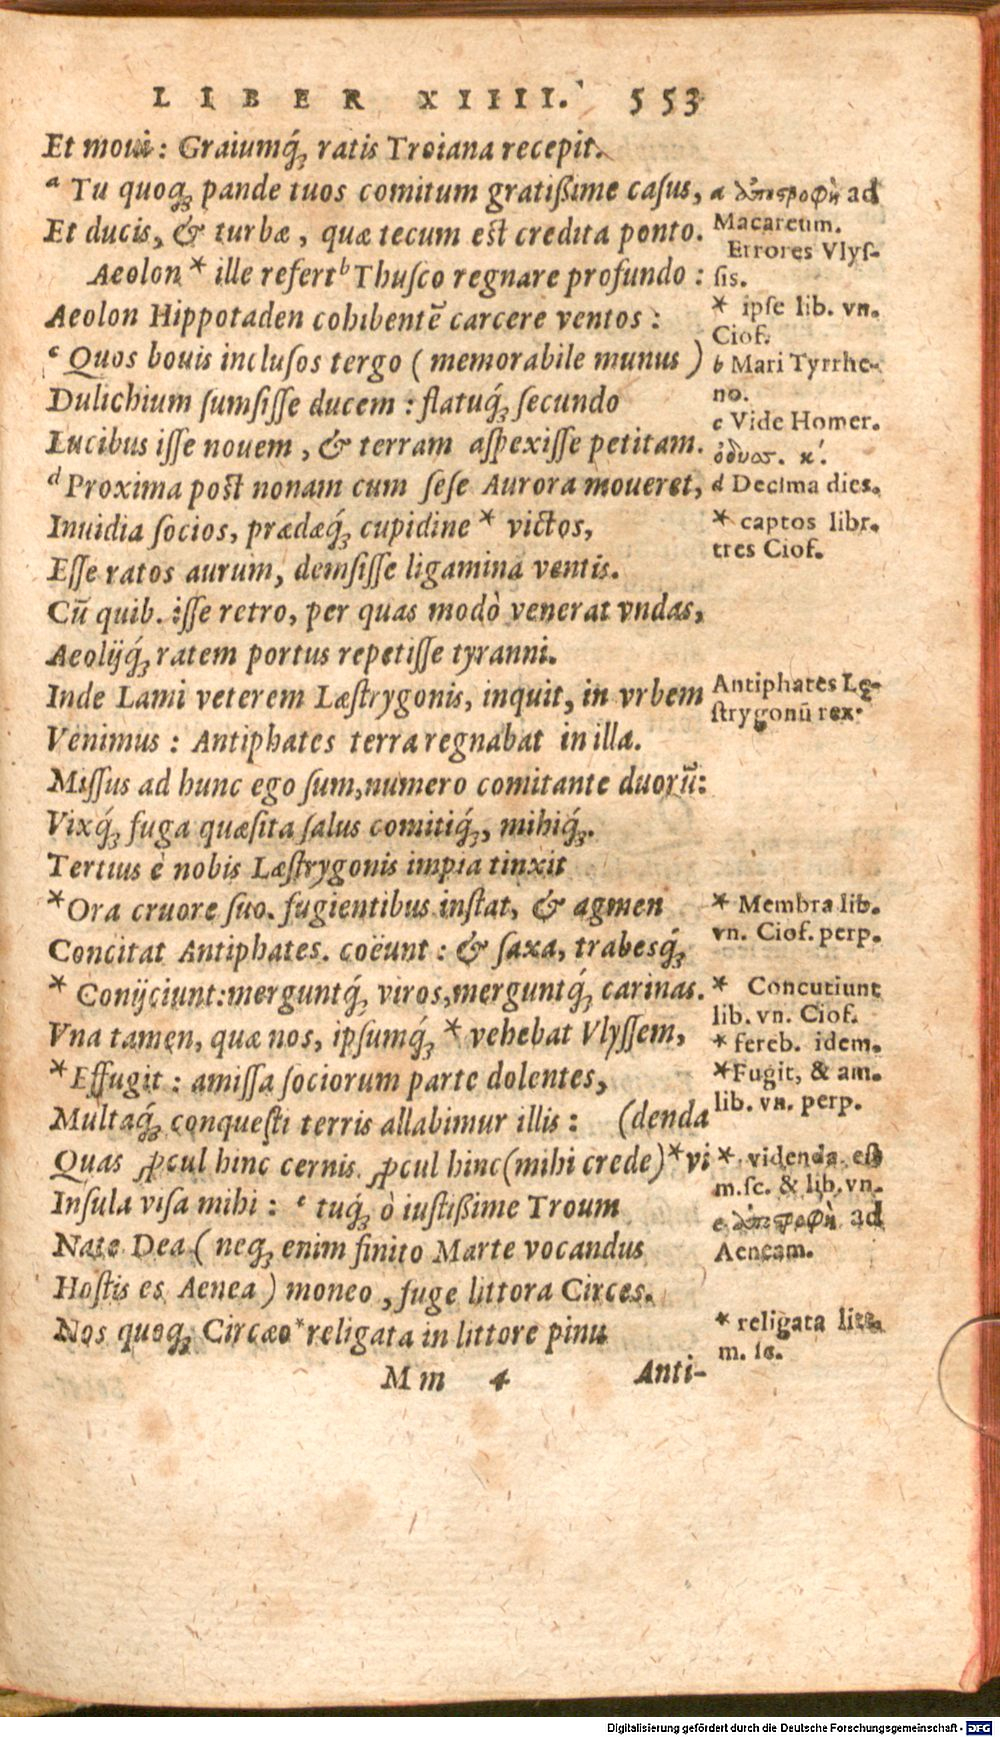 LIBER XIIII. 553
Et moui: Graiumq́ꝫ ratis Troiana recepit.
ᵃ Tu quoqꝫ pande tuos comitum gratißime casus,
Et ducis, & turbæ, quæ tecum est credita ponto.
Aeolon * ille refert ᵇ Thusco regnare profundo:
Aeolon Hippotaden cohibentē carcere ventos:
ᶜ Quos bouis inclusos tergo (memorabile munus)
Dulichium sumsisse ducem: flatuq́ꝫ secundo
Lucibus isse nouem, & terram aspexisse petitam.
ᵈ Proxima post nonam cum sese Aurora moueret,
Inuidia socios, prædæq́ꝫ cupidine * victos,
Esse ratos aurum, demsisse ligamina ventis.
Cū quib. isse retro, per quas modò venerat vndas,
Aeolijq́ꝫ ratem portus repetisse tyranni.
Inde Lami veterem Læstrygonis, inquit, in vrbem
Venimus: Antiphates terra regnabat in illa.
Missus ad hunc ego sum, numero comitante duorū:
Vixq́ꝫ fuga quæsita salus comitiq́ꝫ, mihiq́ꝫ.
Tertius è nobis Læstrygonis impia tinxit
* Ora cruore suo. fugientibus instat, & agmen
Concitat Antiphates. coëunt: & saxa, trabesq́ꝫ
* Conijciunt: merguntq́ꝫ viros, merguntq́ꝫ carinas.
Vna tamen, quæ nos, ipsumq́ꝫ * vehebat Vlyssem,
* Effugit: amissa sociorum parte dolentes,
Multaq́ꝫ conquesti terris allabimur illis: (denda
Quas ꝓcul hinc cernis. ꝓcul hinc (mihi crede) * vi
Insula visa mihi: ᵉ tuq́ꝫ ò iustißime Troum
Nate Dea (neqꝫ enim finito Marte vocandus
Hostis es Aenea) moneo, fuge littora Circes.
Nos quoqꝫ Circæo * religata in littore pinu
Mm 4 Anti-
a ἀποςροφὴ ad
Macareum.
Errores Vlys-
sis.
* ipse lib. vn.
Ciof.
b Mari Tyrrhe-
no.
c Vide Homer.
ὀδυσ. κ΄.
d Decima dies.
* captos libr.
tres Ciof.
Antiphates Le-
strygonū rex.
* Membra lib.
vn. Ciof. perp.
* Concutiunt
lib. vn. Ciof.
* fereb. idem.
* Fugit, & am.
lib. vn. perp.
* videnda est
m. sc. & lib. vn.
e ἀποςροφὴ ad
Aeneam.
* religata litt.
m. sc.
Digitalisierung gefördert durch die Deutsche Forschungsgemeinschaft - DFG